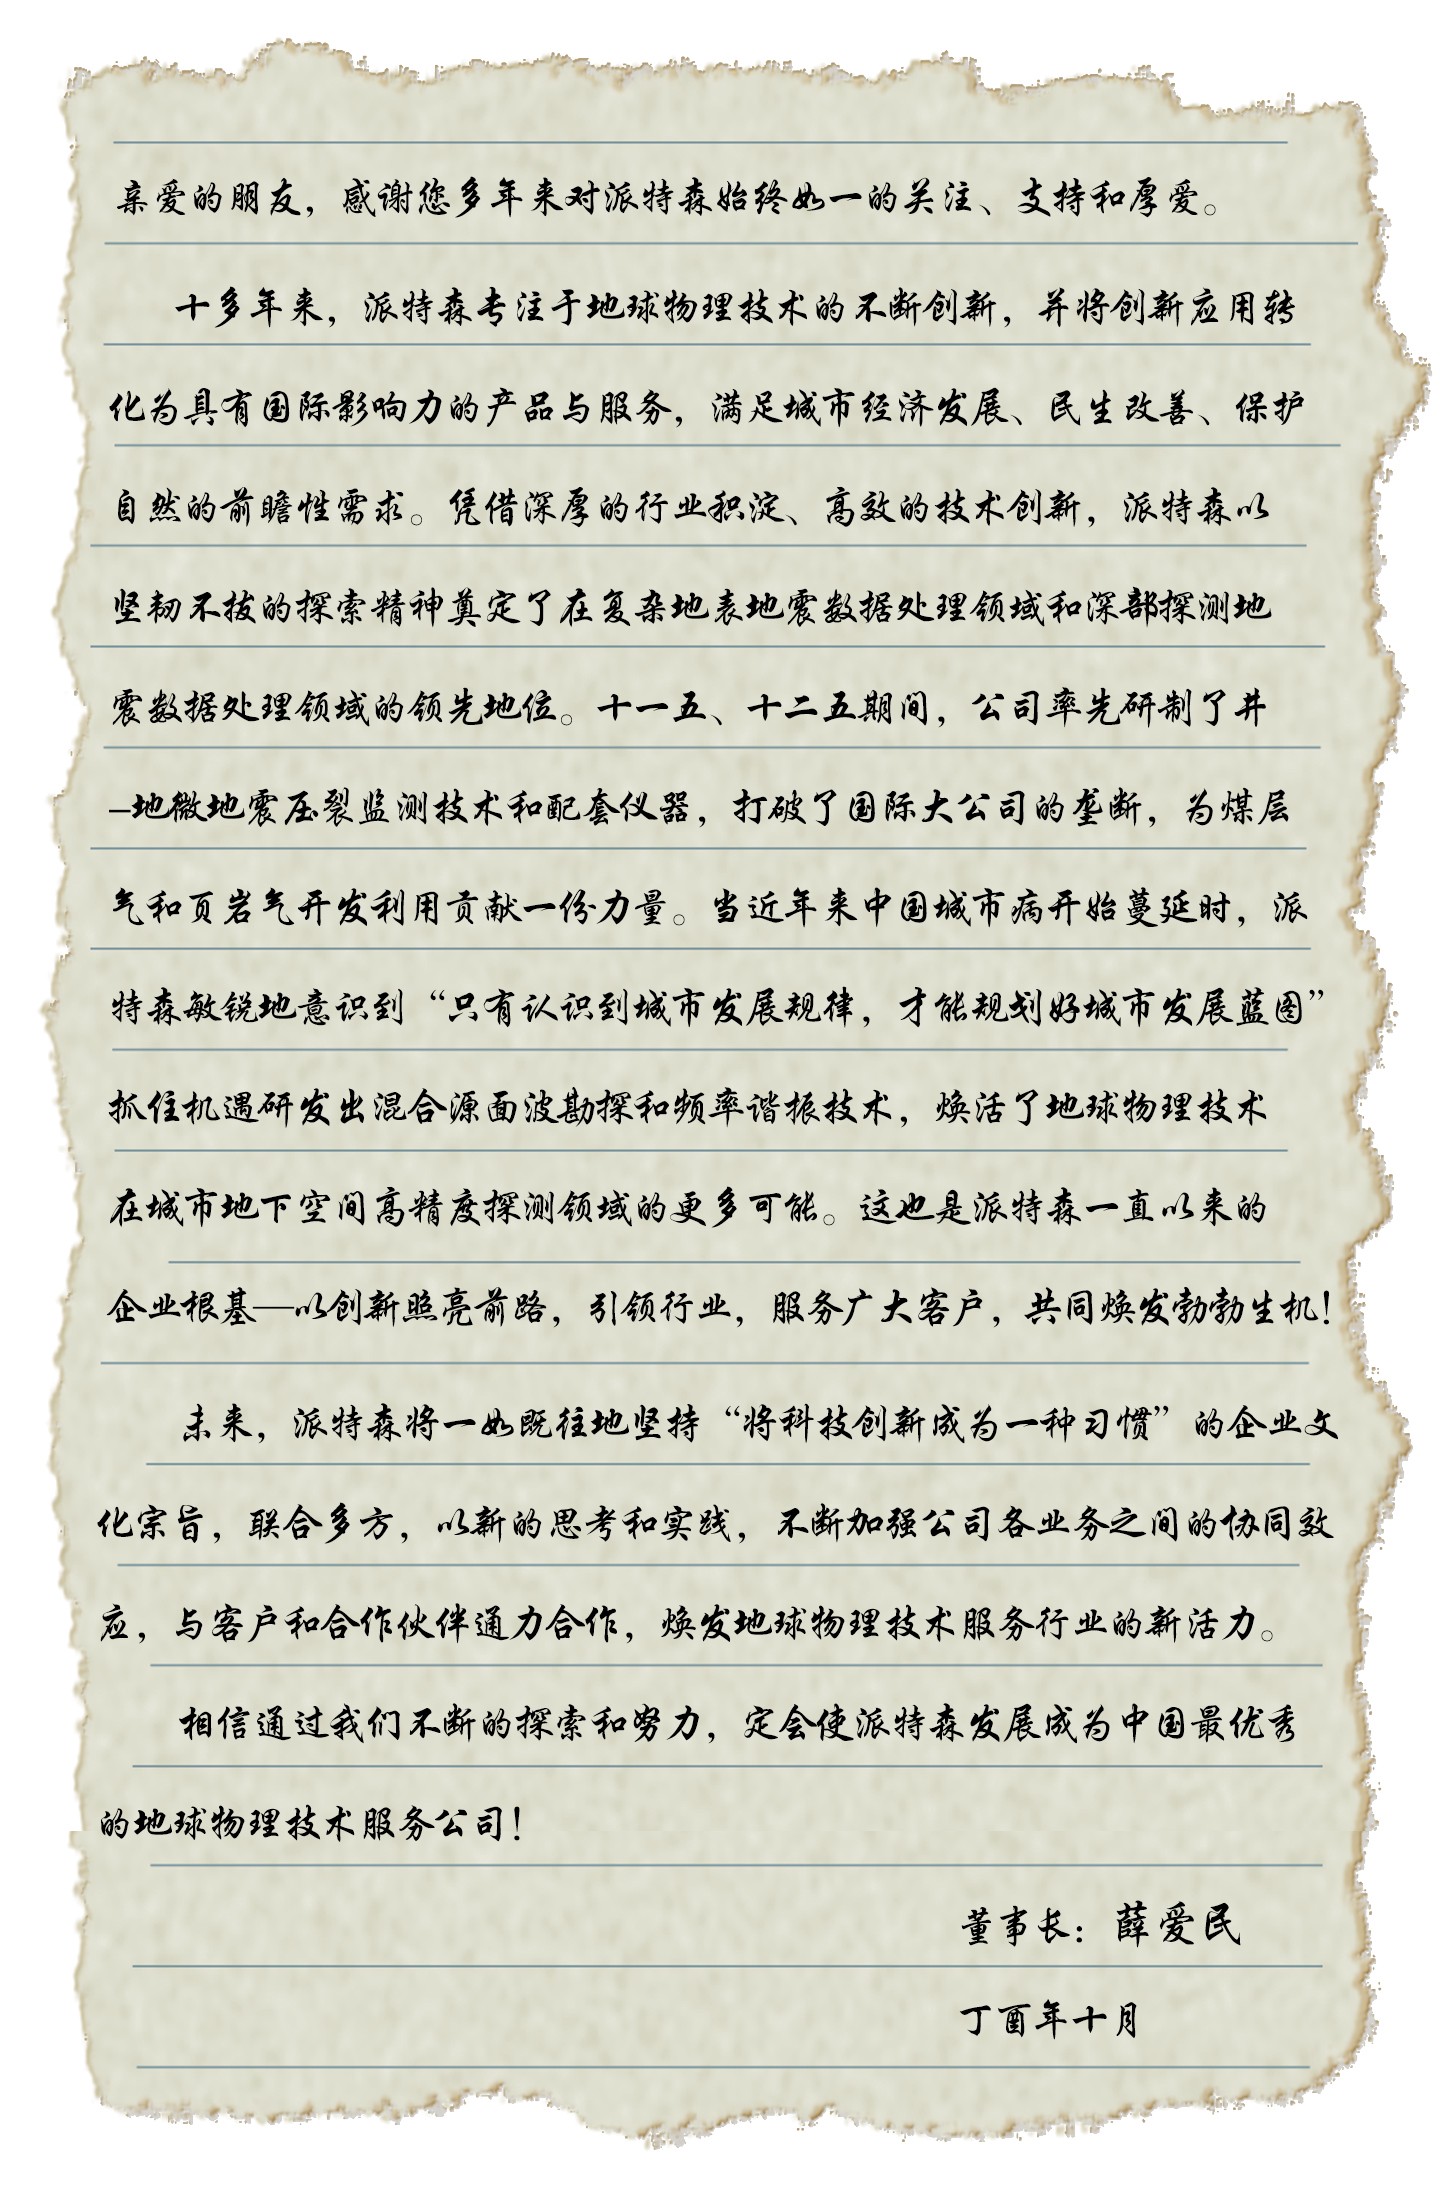 亲爱的朋友，感谢您多年来对派特森始终如一的关注、支持和厚爱。
十多年来，派特森专注于地球物理技术的不断创新，并将创新应用转
化为具有国际影响力的产品与服务，满足城市经济发展、民生改善、保护
自然的前瞻性需求。凭借深厚的行业积淀、高效的技术创新，派特森以
坚韧不拔的探索精神奠定了在复杂地表地震数据处理领域和深部探测地
震数据处理领域的领先地位。十一五、十二五期间，公司率先研制了井
–地微地震压裂监测技术和配套仪器，打破了国际大公司的垄断，为煤层
气和页岩气开发利用贡献一份力量。当近年来中国城市病开始蔓延时，派
特森敏锐地意识到“只有认识到城市发展规律，才能规划好城市发展蓝图”
抓住机遇研发出混合源面波勘探和频率谐振技术，焕活了地球物理技术
在城市地下空间高精度探测领域的更多可能。这也是派特森一直以来的
企业根基—以创新照亮前路，引领行业，服务广大客户，共同焕发勃勃生机！
未来，派特森将一如既往地坚持“将科技创新成为一种习惯”的企业文
化宗旨，联合多方，以新的思考和实践，不断加强公司各业务之间的协同效
应，与客户和合作伙伴通力合作，焕发地球物理技术服务行业的新活力。
相信通过我们不断的探索和努力，定会使派特森发展成为中国最优秀
的地球物理技术服务公司！
董事长：薛爱民
丁酉年十月